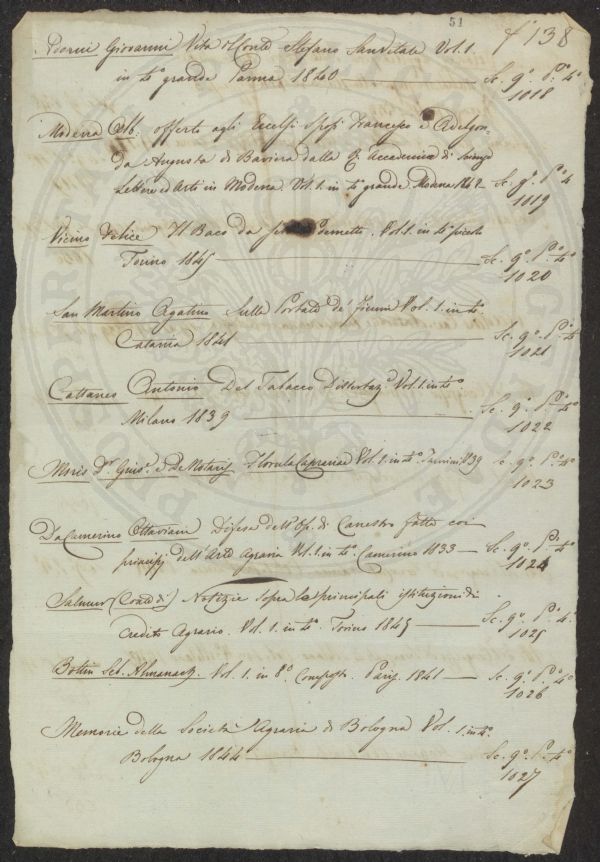 51
f° 138
Adorni Giovanni Vita del Conte Stefano Sanvitale Vol. 1.
in 4.° grande Parma 1840 Sc. 9.° P.° 4°
1018
Modena Obb. offerte agli Eccelsi Sposi Francesco e Adelgon
da Augusta di Baviera dalla R. Accademia di Scienze
Lettere ed Arti in Modena Vol. 1. in 4.° grande Modena 1842 Sc. 9.° P.° 4
1019
Vicino Felice Il Baco da Vol. 1. in 4.° piccolo
Torino 1845 Sc. 9.° P.° 4°
1020
San Martino Agatino Sulla Portata de' Fiumi Vol. 1. in 4.°
Catania 1841 Sc. 9.° P.° 4°
1021
Cattaneo Antonio Del Tabacco Dissertaz.e Vol. 1. in 4.°
Milano 1839 Sc. 9.° P.° 4°
1022
Moris D.r Gius.e e De Notaris Florula Caprariae Vol. 1. in 4.° Taurini 1839 Sc. 9.° P.° 4°
1023
Da Camerino Ottaviani Difesa dell'Op. di Canestro fatta coi
principj dell'Arte Agraria Vol. 1. in 4.° Camerino 1833 Sc. 9.° P.° 4°
1024
Salmour (Conte di) Notizie sopra le principali istituzioni di
Credito Agrario. Vol. 1. in 4.° Torino 1845 Sc. 9.° P.° 4°
1025
Bottin Seb. Almanach. Vol. 1. in 8.° Parig. 1841 Sc. 9.° P.° 4°
1026
Memorie della Società Agraria di Bologna Vol. 1. in 4.°
Bologna 1844 Sc. 9.° P.° 4°
1027